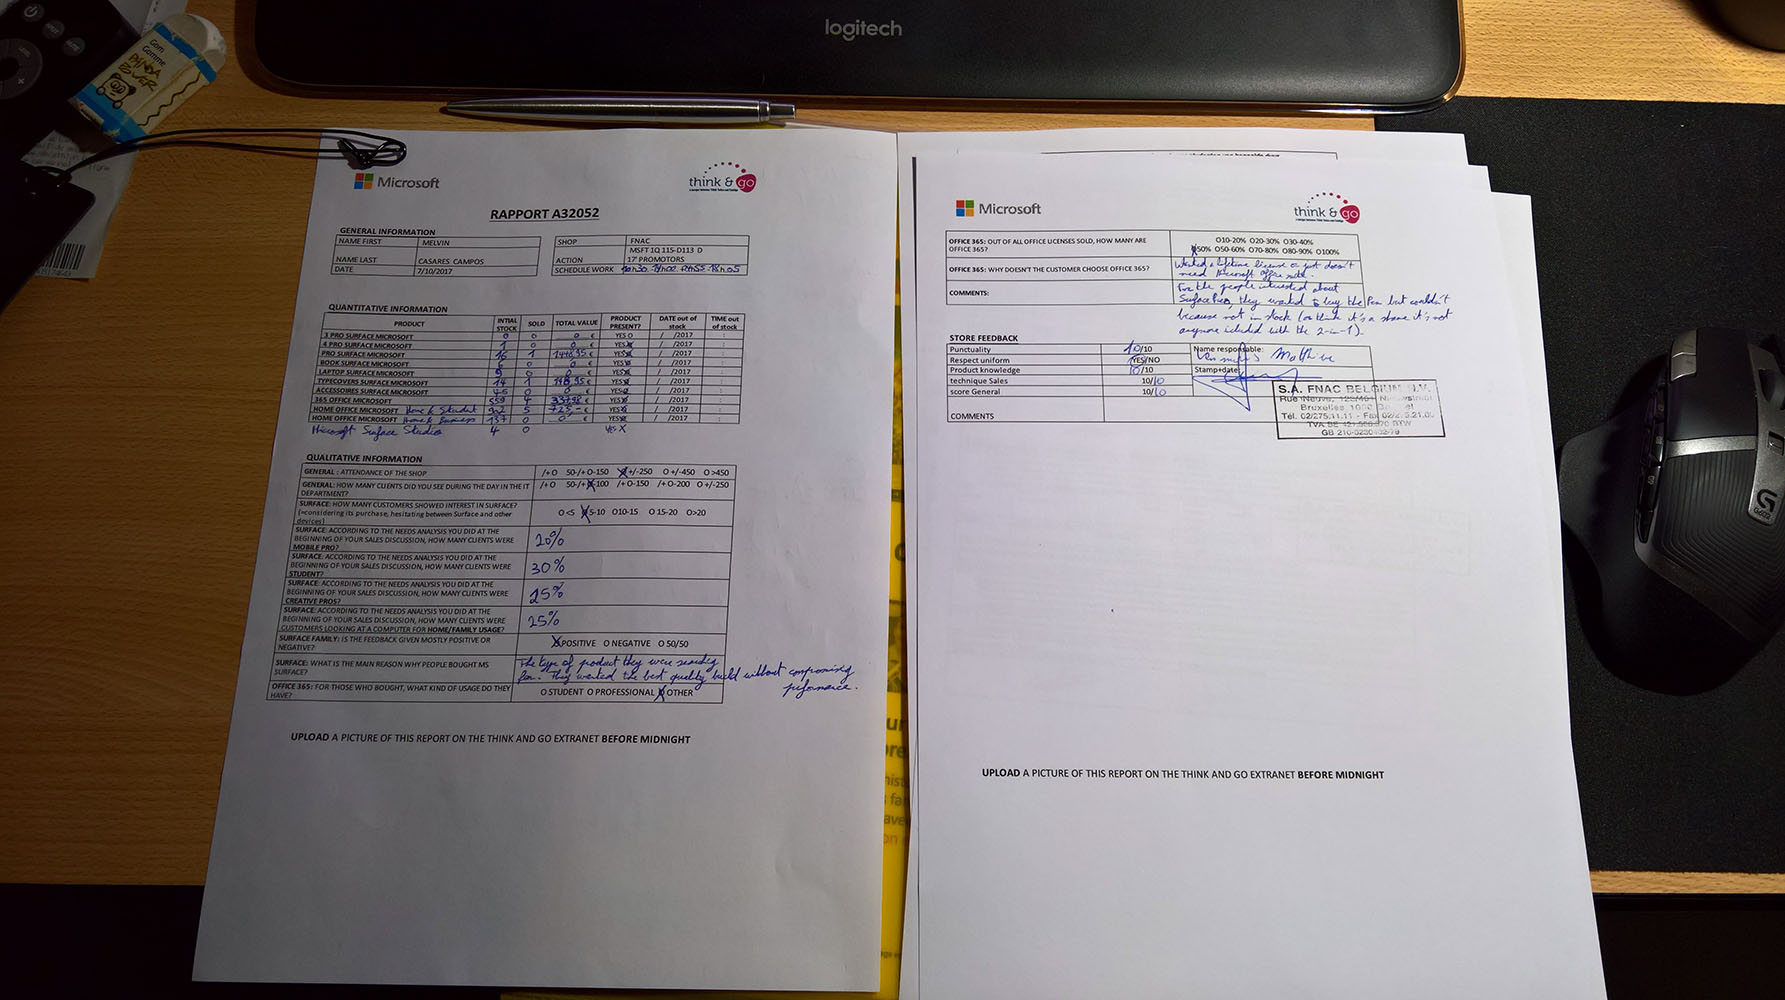 logitech
Gom
Gomme
PANDA
POWER
Microsoft
think & go
RAPPORT A32052
GENERAL INFORMATION
NAME FIRST MELVIN
NAME LAST CASARES CAMPOS
DATE 7/10/2017
SHOP FNAC
MSFT 1Q 115-D113 D
ACTION 17' PROMOTORS
SCHEDULE WORK
QUANTITATIVE INFORMATION
PRODUCT INTIAL STOCK SOLD TOTAL VALUE PRODUCT PRESENT? DATE out of stock TIME out of stock
3 PRO SURFACE MICROSOFT 0 0 0 € YES O / /2017 :
4 PRO SURFACE MICROSOFT 1 0 0 € YES / /2017 :
PRO SURFACE MICROSOFT 16 1 € YES / /2017 :
BOOK SURFACE MICROSOFT 0 0 € YES / /2017 :
LAPTOP SURFACE MICROSOFT 9 0 0 € YES / /2017 :
TYPECOVERS SURFACE MICROSOFT 14 1 € YES / /2017 :
ACCESSOIRES SURFACE MICROSOFT 45 0 0 € YES / /2017 :
365 OFFICE MICROSOFT 559 4 € YES / /2017 :
HOME OFFICE MICROSOFT Home & Student 5 725,- € YES / /2017 :
HOME OFFICE MICROSOFT Home & Business 137 0 0 € YES / /2017 :
Microsoft Surface Studio 4 0 YES X
QUALITATIVE INFORMATION
GENERAL : ATTENDANCE OF THE SHOP /+ O 50-/+ O-150 X +/-250 O +/-450 O >450
GENERAL: HOW MANY CLIENTS DID YOU SEE DURING THE DAY IN THE IT /+ O 50-/+ X-100 /+ O-150 /+ O-200 O +/-250
DEPARTMENT?
SURFACE: HOW MANY CUSTOMERS SHOWED INTEREST IN SURFACE?
(=considering its purchase, hesitating between Surface and other O <5 X 5-10 O10-15 O 15-20 O>20
devices)
SURFACE: ACCORDING TO THE NEEDS ANALYSIS YOU DID AT THE
BEGINNING OF YOUR SALES DISCUSSION, HOW MANY CLIENTS WERE 20%
MOBILE PRO?
SURFACE: ACCORDING TO THE NEEDS ANALYSIS YOU DID AT THE
BEGINNING OF YOUR SALES DISCUSSION, HOW MANY CLIENTS WERE 30%
STUDENT?
SURFACE: ACCORDING TO THE NEEDS ANALYSIS YOU DID AT THE
BEGINNING OF YOUR SALES DISCUSSION, HOW MANY CLIENTS WERE 25%
CREATIVE PROS?
SURFACE: ACCORDING TO THE NEEDS ANALYSIS YOU DID AT THE
BEGINNING OF YOUR SALES DISCUSSION, HOW MANY CLIENTS WERE 25%
CUSTOMERS LOOKING AT A COMPUTER FOR HOME/FAMILY USAGE?
SURFACE FAMILY: IS THE FEEDBACK GIVEN MOSTLY POSITIVE OR X POSITIVE O NEGATIVE O 50/50
NEGATIVE?
SURFACE: WHAT IS THE MAIN REASON WHY PEOPLE BOUGHT MS The type of product they were searching
SURFACE? for. They wanted the best quality build without compromising
performance.
OFFICE 365: FOR THOSE WHO BOUGHT, WHAT KIND OF USAGE DO THEY O STUDENT O PROFESSIONAL X OTHER
HAVE?
UPLOAD A PICTURE OF THIS REPORT ON THE THINK AND GO EXTRANET BEFORE MIDNIGHT
Microsoft
think & go
OFFICE 365: OUT OF ALL OFFICE LICENSES SOLD, HOW MANY ARE O10-20% O20-30% O30-40%
OFFICE 365? X50% O50-60% O70-80% O80-90% O100%
OFFICE 365: WHY DOESN'T THE CUSTOMER CHOOSE OFFICE 365? Wanted a lifetime license or just doesn't
need Microsoft office suite.
COMMENTS: For the people interested about
Surface Pro, they wanted to buy the Pen but couldn't
because not in stock (or think it's a shame it's not
anymore included with the 2-in-1).
STORE FEEDBACK
Punctuality 10/10 Name responsable:
Respect uniform YES/NO Matthieu
Product knowledge 10/10 Stamp+date:
technique Sales 10/10
score General 10/10
COMMENTS
S.A. FNAC BELGIUM N.V.
Rue Neuve, 123/
Bruxelles 1000
Tél. 02/275.11.11 - Fax
UPLOAD A PICTURE OF THIS REPORT ON THE THINK AND GO EXTRANET BEFORE MIDNIGHT
G
G602